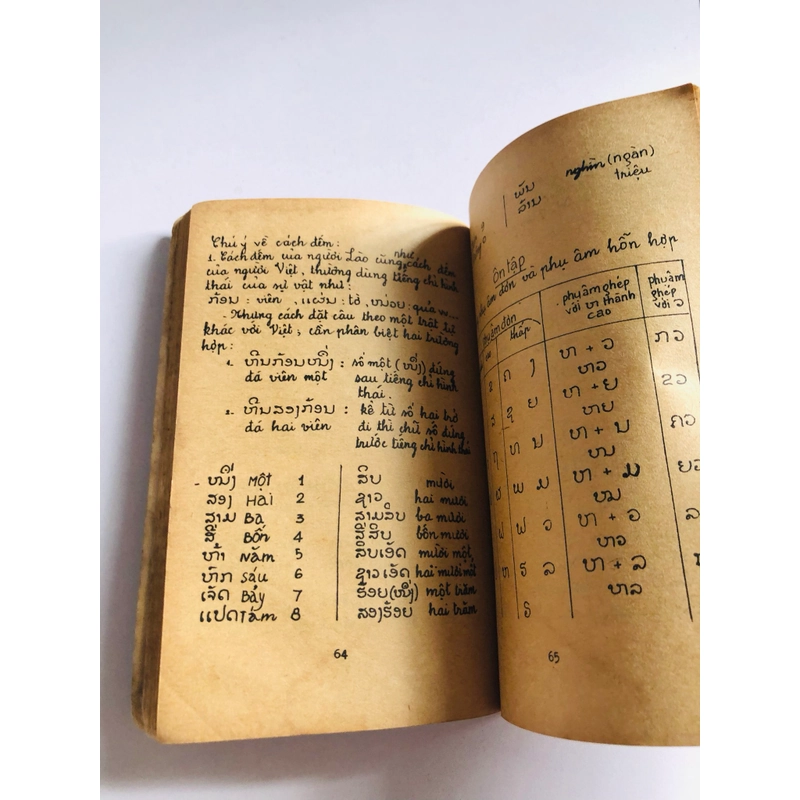 Chú ý về cách đếm:
1. Cách đếm của người Lào cũng như cách đếm
của người Việt, thường dùng tiếng chỉ hình
thái của sự vật như:
ກ້ອນ: viên, ແຜ່ນ: tờ, ໜ່ວຍ: quả v...
- Nhưng cách đặt câu theo một trật tự
khác với Việt; cần phân biệt hai trường
hợp:
1. ຫີນກ້ອນໜຶ່ງ: số một (ໜຶ່ງ) đứng
đá viên một sau tiếng chỉ hình
thái.
2. ຫີນສອງກ້ອນ: kể từ số hai trở
đá hai viên đi thì chữ số đứng
trước tiếng chỉ hình thái
- ໜຶ່ງ một 1 ສິບ mười
ສອງ hai 2 ຊາວ hai mươi
ສາມ ba 3 ສາມສິບ ba mươi
ສີ່ bốn 4 ສີ່ສິບ bốn mươi
ຫ້າ năm 5 ສິບເອັດ mười một
ຫົກ sáu 6 ຊາວເອັດ hai mươi mốt
ເຈັດ bảy 7 ຮ້ອຍ(ໜຶ່ງ) một trăm
ແປດ tám 8 ສອງຮ້ອຍ hai trăm
64
ພັນ nghìn (ngàn)
ລ້ານ triệu
Ôn tập
âm đơn và phụ âm hỗn hợp
âm đơn phụ âm ghép với ຫ thành cao phụ âm ghép với ວ
thấp
ຂ ຄ ງ ຫ + ວ ກວ
ຫວ
ສ ຊ ຍ ຫ + ຍ ຂວ
ຫຍ
ຖ ທ ນ ຫ + ນ ຄວ
ຫນ
ຜ ພ ມ ຫ + ມ
ຫມ
ຝ ຟ ວ ຫ + ວ
ຫວ
ຫ ຮ ລ ຫ + ລ
ຫລ
65